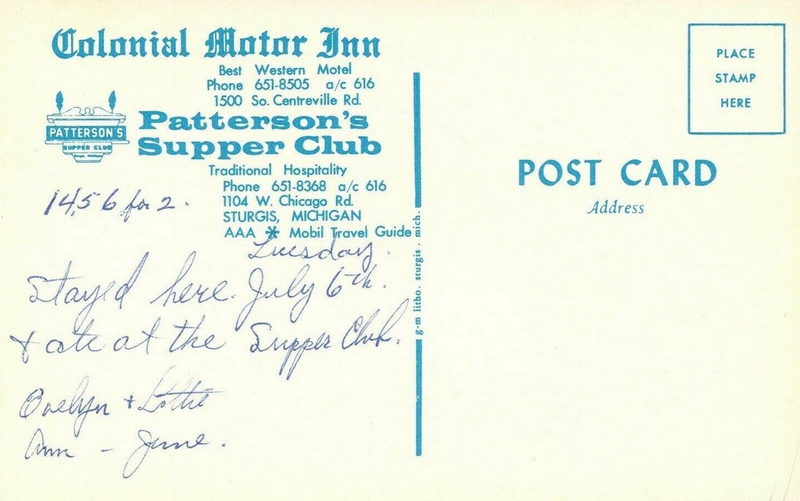 Colonial Motor Inn
Best Western Motel
Phone 651-8505 a/c 616
1500 So. Centreville Rd.
PATTERSON'S
SUPPER CLUB
Sturgis, Michigan
Patterson's
Supper Club
Traditional Hospitality
Phone 651-8368 a/c 616
1104 W. Chicago Rd.
STURGIS, MICHIGAN
AAA * Mobil Travel Guide
14,56 for 2.
Tuesday.
Stayed here July 6th.
+ ate at the Supper Club.
Evelyn + Lottie
Ann - June.
g-m litho. sturgis. mich.
PLACE
STAMP
HERE
POST CARD
Address